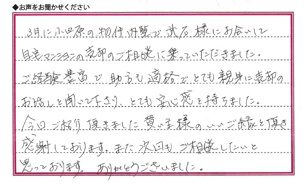 ●お声をお聞かせください
3月に小田原の物件内覧で武石様にお会いして
自宅マンションの売却のご相談に乗っていただきました。
ご経験豊富で助言も適格でとても親身に売却の
お話しを聞いて下さり、とても安心感を持ちました。
今回ご紹介頂きました買い主様のいいご縁を頂き
感謝しております。また次回もご相談したいと
思っております。ありがとうございました。